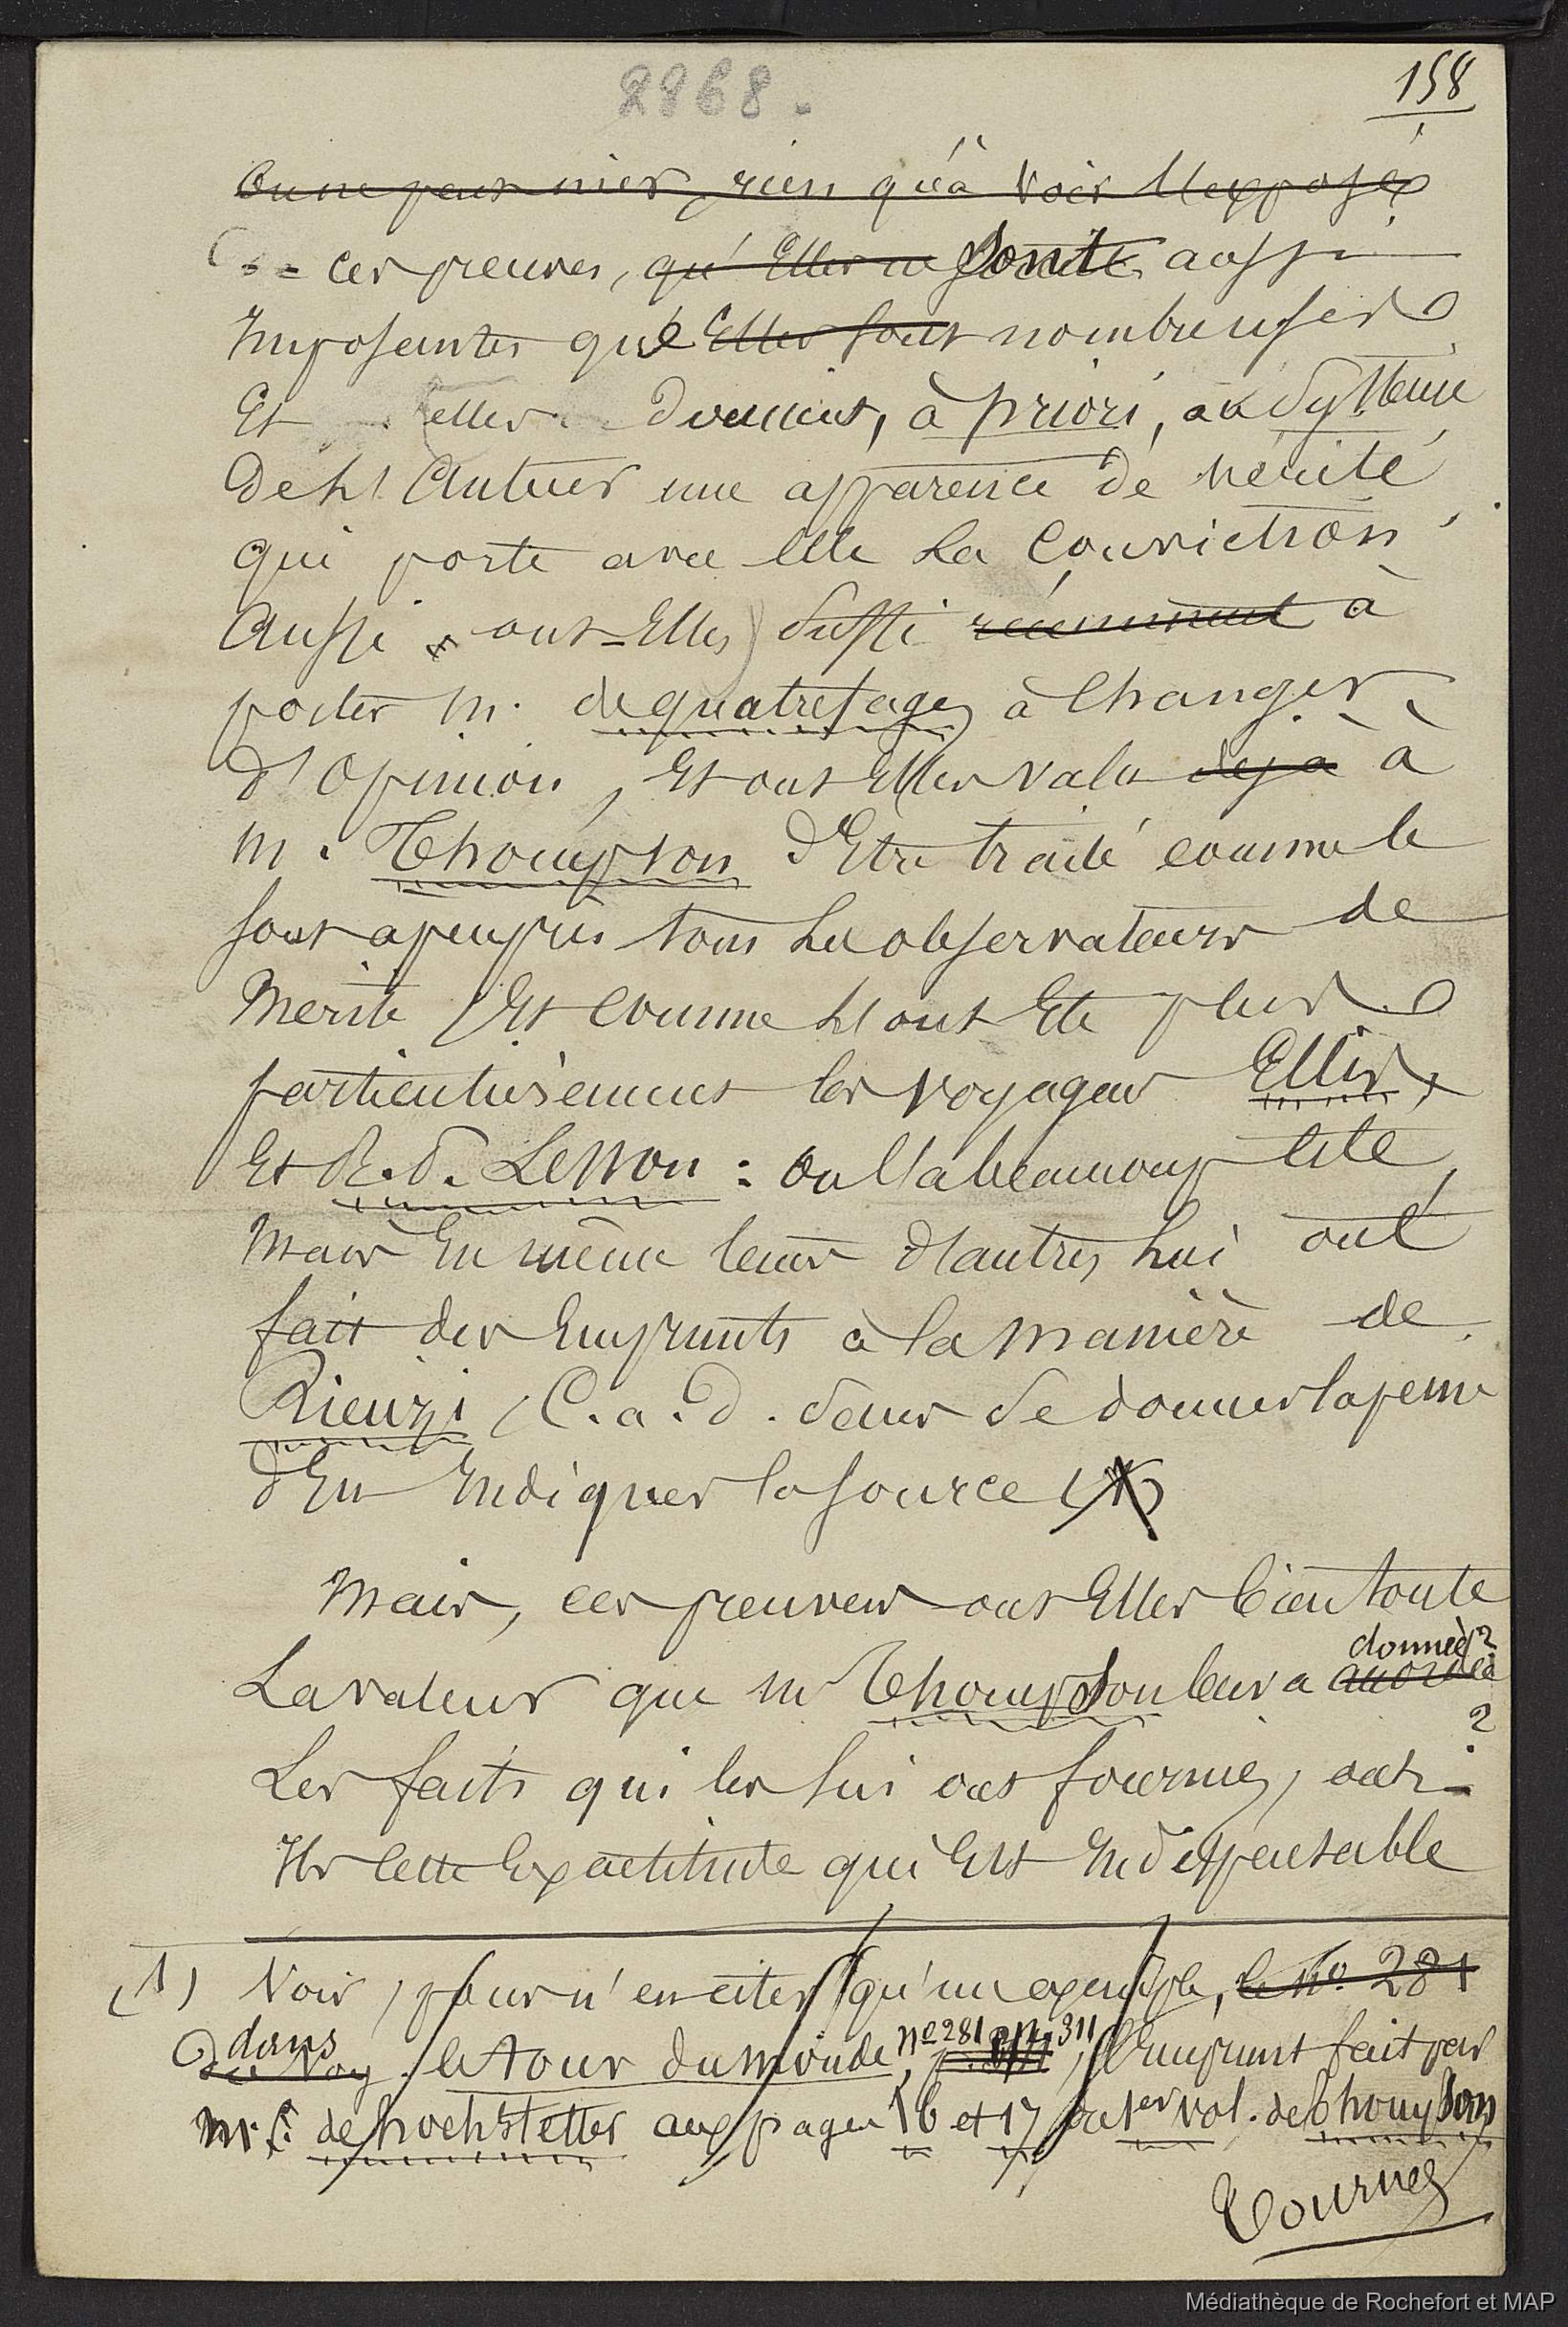 2868.
158
On ne peut nier, rien qu'à voir l'exposé
ces preuves, qu'Elles ne sont aussi
Imposantes que Elles sont nombreuses
Et elles donnent, à priori, au systême
de l'Auteur une apparence de vérité
qui porte avec Elle la Conviction
Aussi ont-Elles suffi récemment à
porter M. de quatrefages à Changer
d'Opinion, Et ont Elles valu déjà à
M. Thompson d'Etre traité comme le
sont apeuprès tous les observateurs de
Mérite, Et comme l'ont Eté plus
particulièrement les voyageurs Ellis,
Et R. P. Lesson : on l'a beaucoup cité,
Mais En même tems d'autres lui ont
fait des Emprunts à la manière de
Rienzi, C.a.D. sans se donner la peine
d'En Indiquer la source (1)
Mais, ces preuves ont Elles bien toute
donnée ?
La valeur que Mr Thompson leur a accordée
?
Les faits qui les lui ont fournies, ont-
Ils cette Exactitude qui Est Indispensable
(1) Voir, pour n'en citer qu'un exemple, le No. 281
dans no 281 311
du Voy. le tour du monde, l'Emprunt fait par
Mr. F. de hochstetter aux pages 16 et 17 du 1er vol. de Thompson
Tournez
Médiathèque de Rochefort et MAP